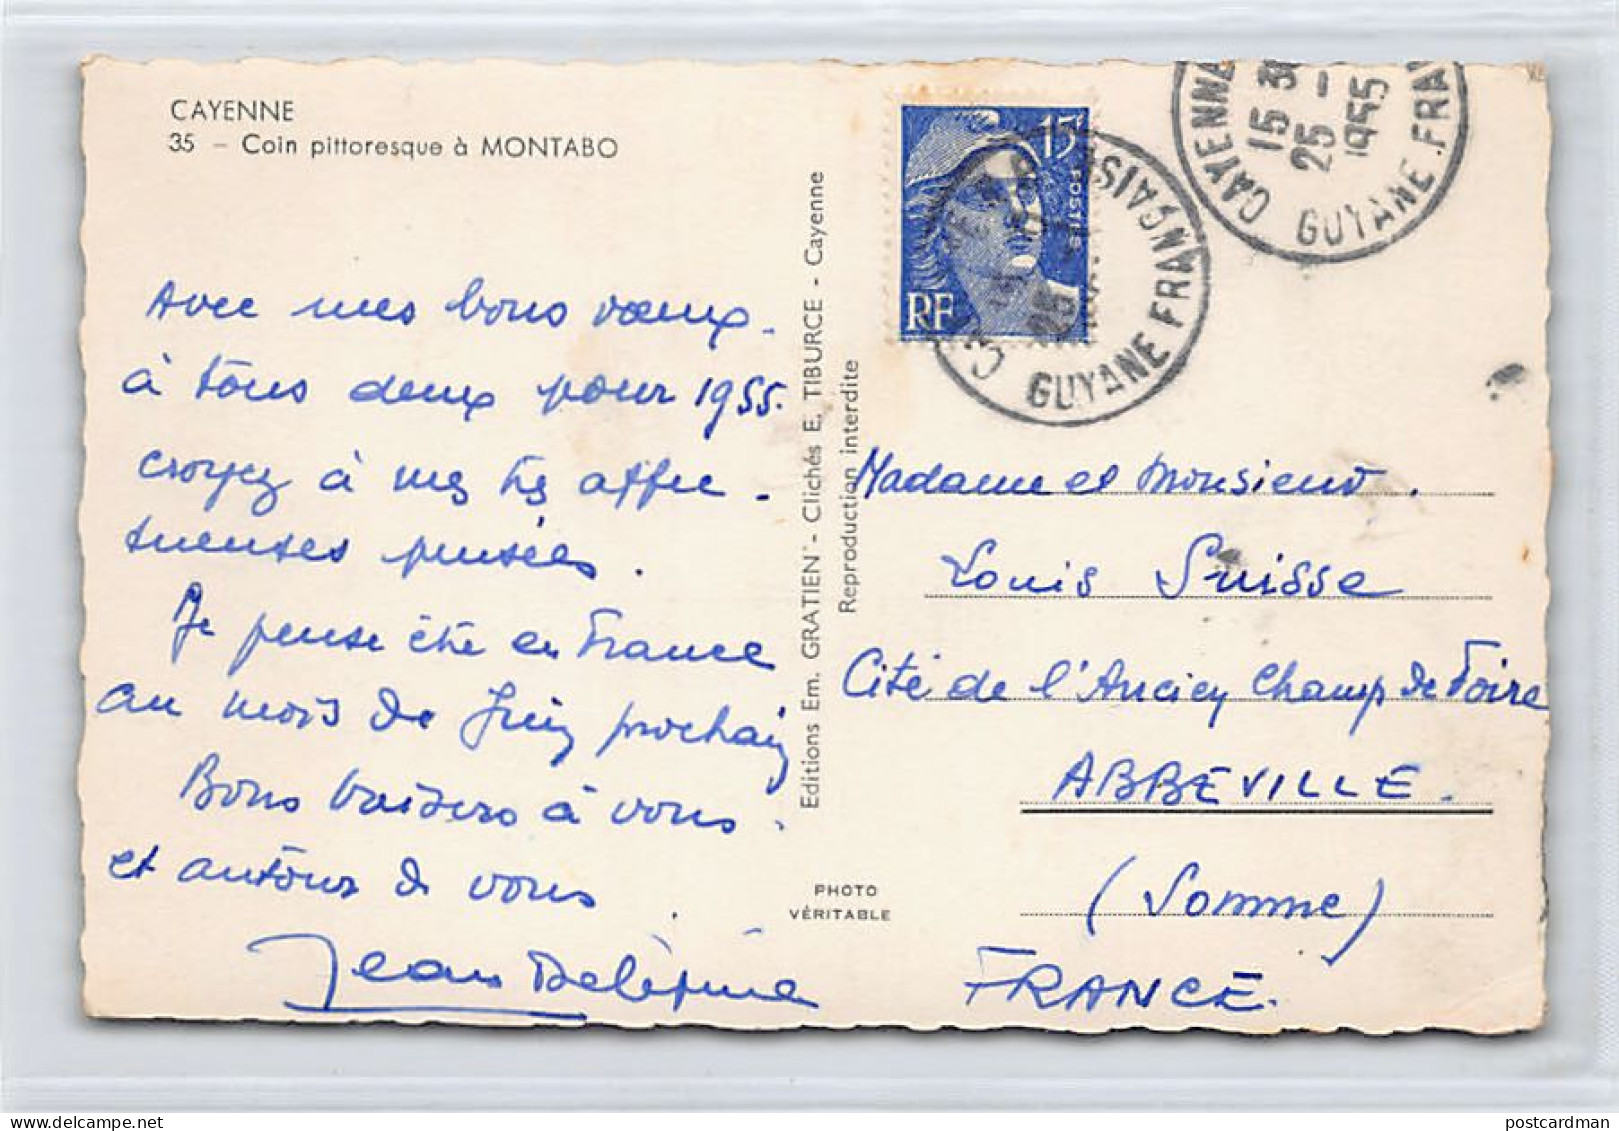 CAYENNE
35 - Coin pittoresque à MONTABO
Avec mes bons vœux
à tous deux pour 1955.
croyez à mes très affec-
tueuses pensées.
Je pense être en France
au mois de Juin prochain
Bons baisers à vous
et autour de vous.
Jean Delépine
Editions Em. GRATIEN - Clichés E. TIBURCE - Cayenne
Reproduction interdite
PHOTO
VÉRITABLE
15F
POSTES
RF
GUYANE FRANÇAISE
CAYENNE
15 30
25 - 1
1955
GUYANE FRA
Madame et Monsieur
Louis Suisse
Cité de l'Ancien Champ de Foire
ABBEVILLE.
(Somme)
FRANCE.
postcardman